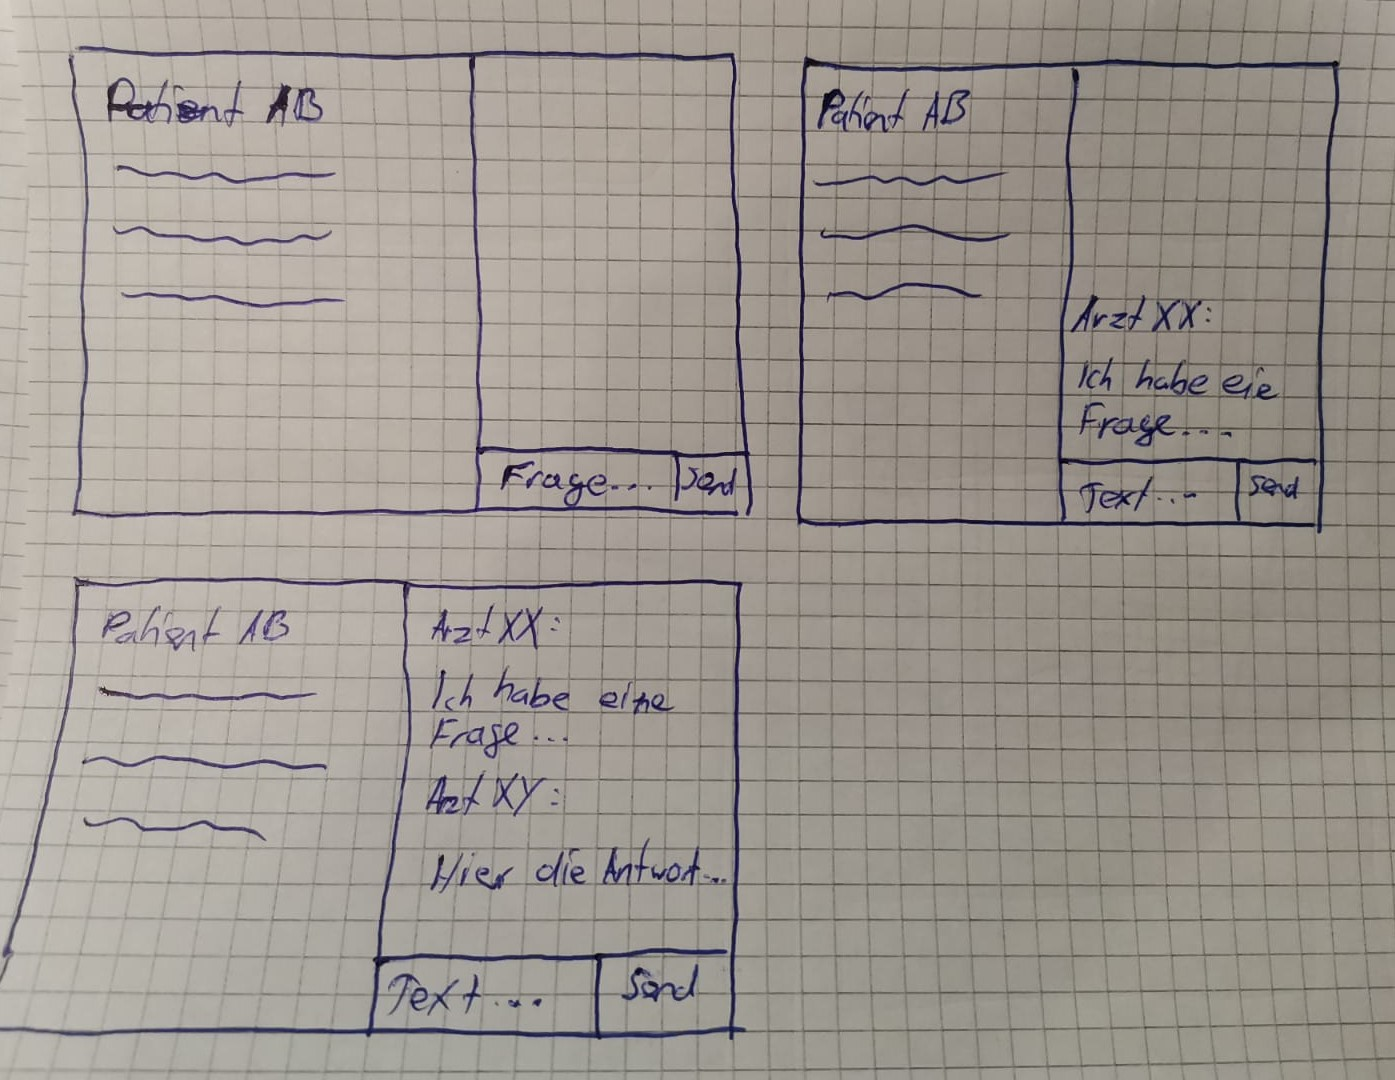 Patient AB
Frage...
Send
Patient AB
Arzt XX:
Ich habe eie
Frage...
Text...
Send
Patient AB
Arzt XX:
Ich habe eine
Frage...
Arzt XY:
Hier die Antwort...
Text...
Send